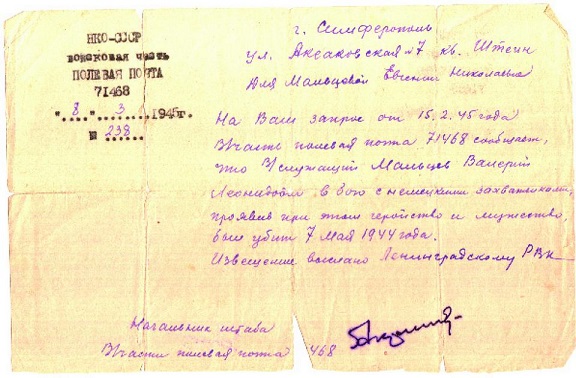 НКО-СССР
войсковая часть
ПОЛЕВАЯ ПОЧТА
71468
"8" 3 1945г.
№ 238
г. Симферополь
ул. Аксаковская №7 кв. Штейн
Для Мальцовой Евгении Николаевны
На Ваш запрос от 15.2.45 года
В/часть полевая почта 71468 сообщает,
что В/служащий Мальцев Валерий
Леонидович в бою с немецкими захватчиками,
проявив при этом геройство и мужество,
был убит 7 мая 1944 года.
Извещение выслано Ленинградскому РВК
Начальник штаба
В/части полевая почта 468